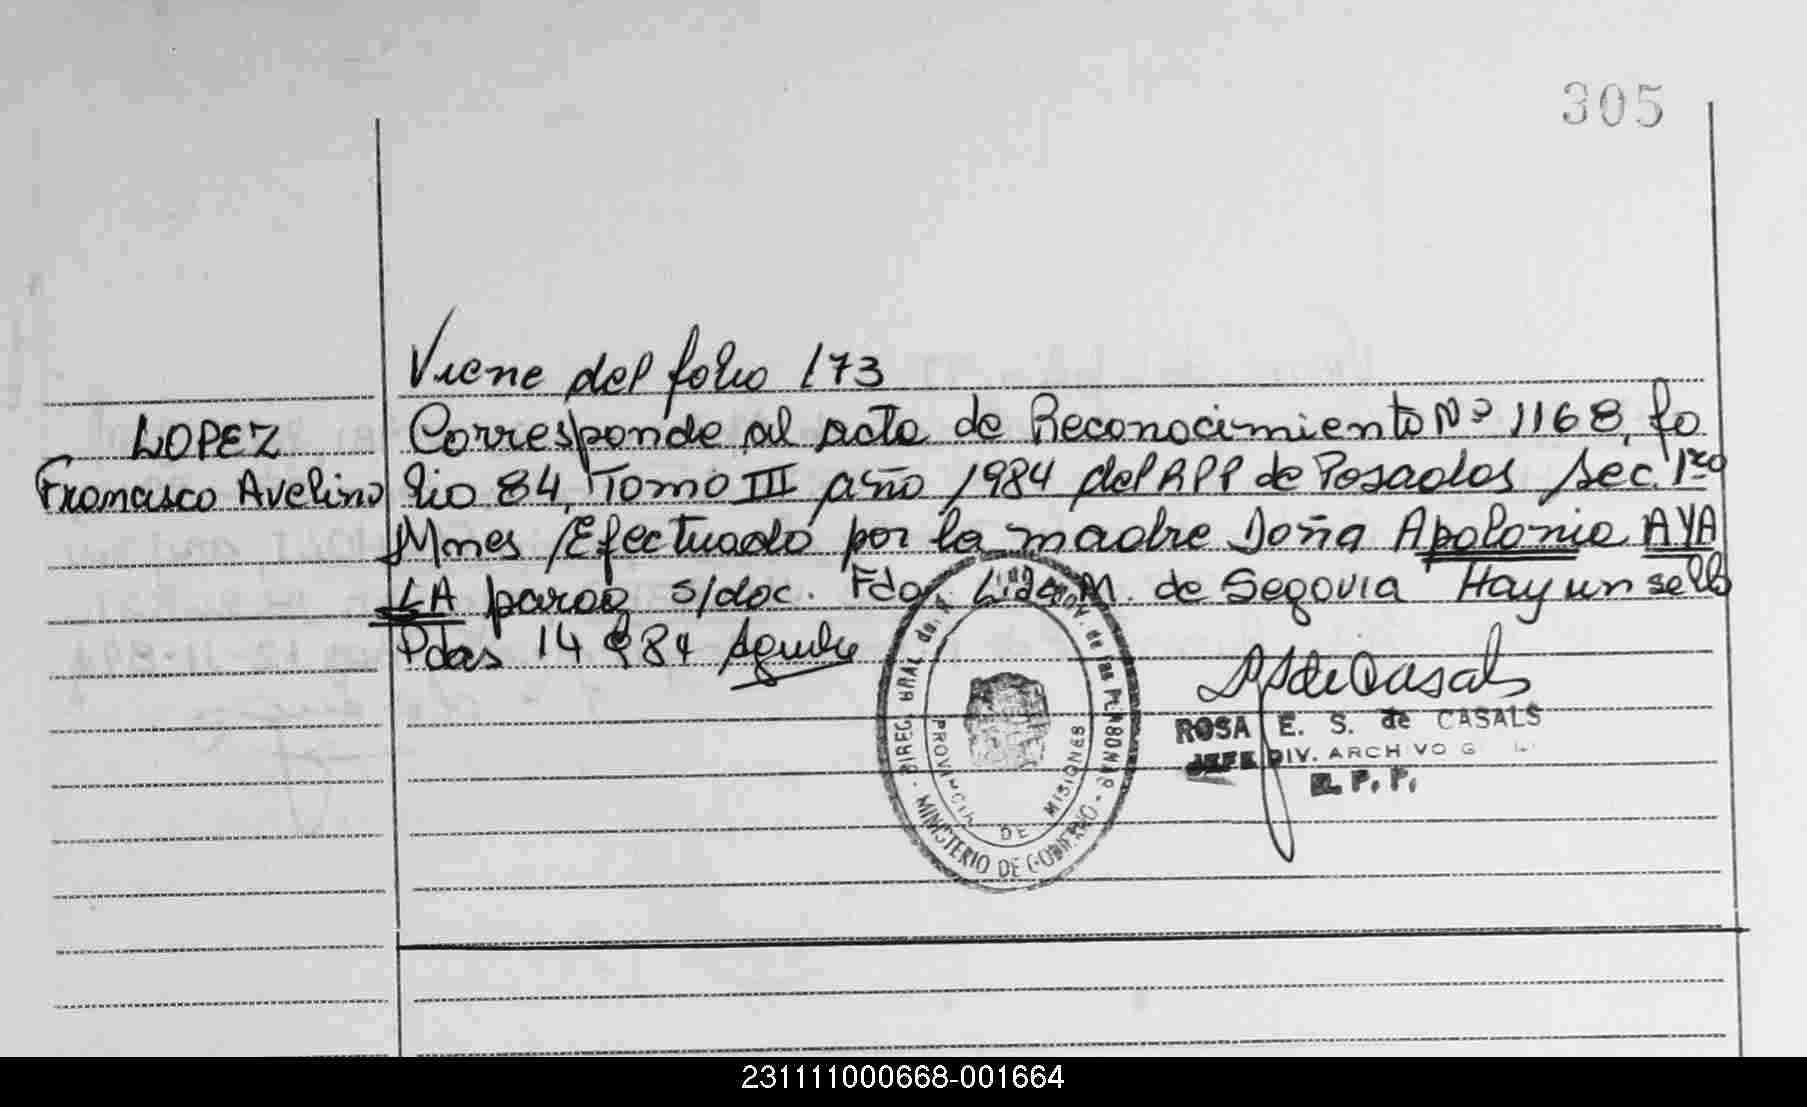 305
Viene del folio 173
LOPEZ
Francisco Avelino
Corresponde al acta de Reconocimiento Nº 1168, fo
lio 84, Tomo III año 1984 del RPP de Posadas Sec. 1ra
Mnes /Efectuado por la madre Doña Apolonia AYA
LA s/doc. Fdo. Lida M. de Segovia Hay un sello
Pdas 14 84
DIREC. GRAL de de las PERSONAS
MINISTERIO DE GOBIERNO
PROVINCIA DE MISIONES
ROSA E. S. de CASALS
JEFE DIV. ARCHIVO G
R. P. P.
231111000668-001664